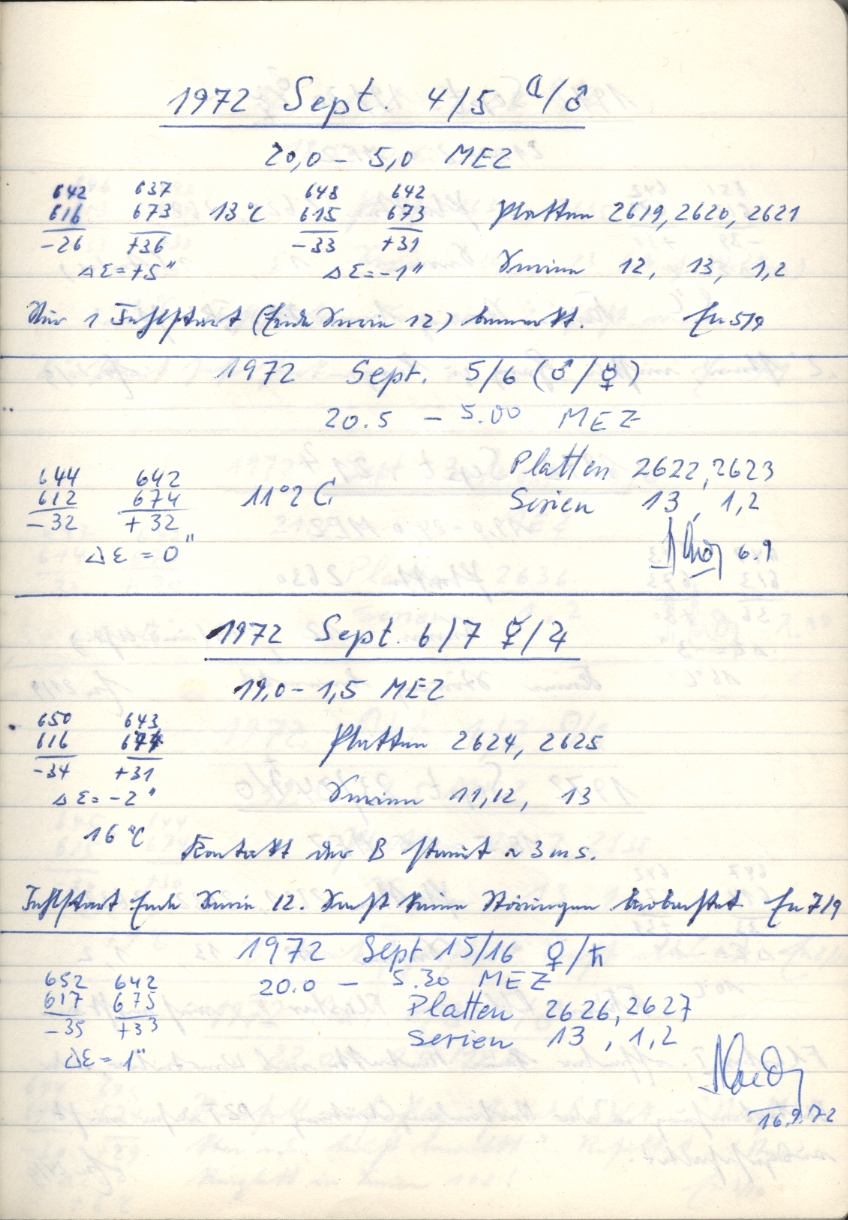 1972 Sept. 4/5 ☾/♂
20,0 – 5,0 MEZ
642 637 648 642
616 673 13°C 615 673 Platten 2619, 2620, 2621
-26 +36 -33 +31
Δε=+5" Δε=-1" Serien 12, 13, 1,2
Nur 1 Fehlstart (Ende Serie 12) bemerkt. 5/9
1972 Sept. 5/6 (♂/☿)
20.5 – 5.00 MEZ
644 642 Platten 2622, 2623
612 674 11°2 C Serien 13, 1,2
-32 +32
Δε = 0" 6.9
1972 Sept. 6/7 ☿/♃
19,0 – 1,5 MEZ
650 643
616 674 Platten 2624, 2625
-34 +31
Δε=-2" Serien 11,12, 13
16°C Kontakt der B streut ~ 3 ms.
Fehlstart Ende Serie 12. Sonst keine Störungen beobachtet. 7/9
1972 Sept 15/16 ♀/♄
652 642 20.0 – 5.30 MEZ
617 675 Platten 2626, 2627
-35 +33 Serien 13, 1,2
Δε= 1"
16.9.72